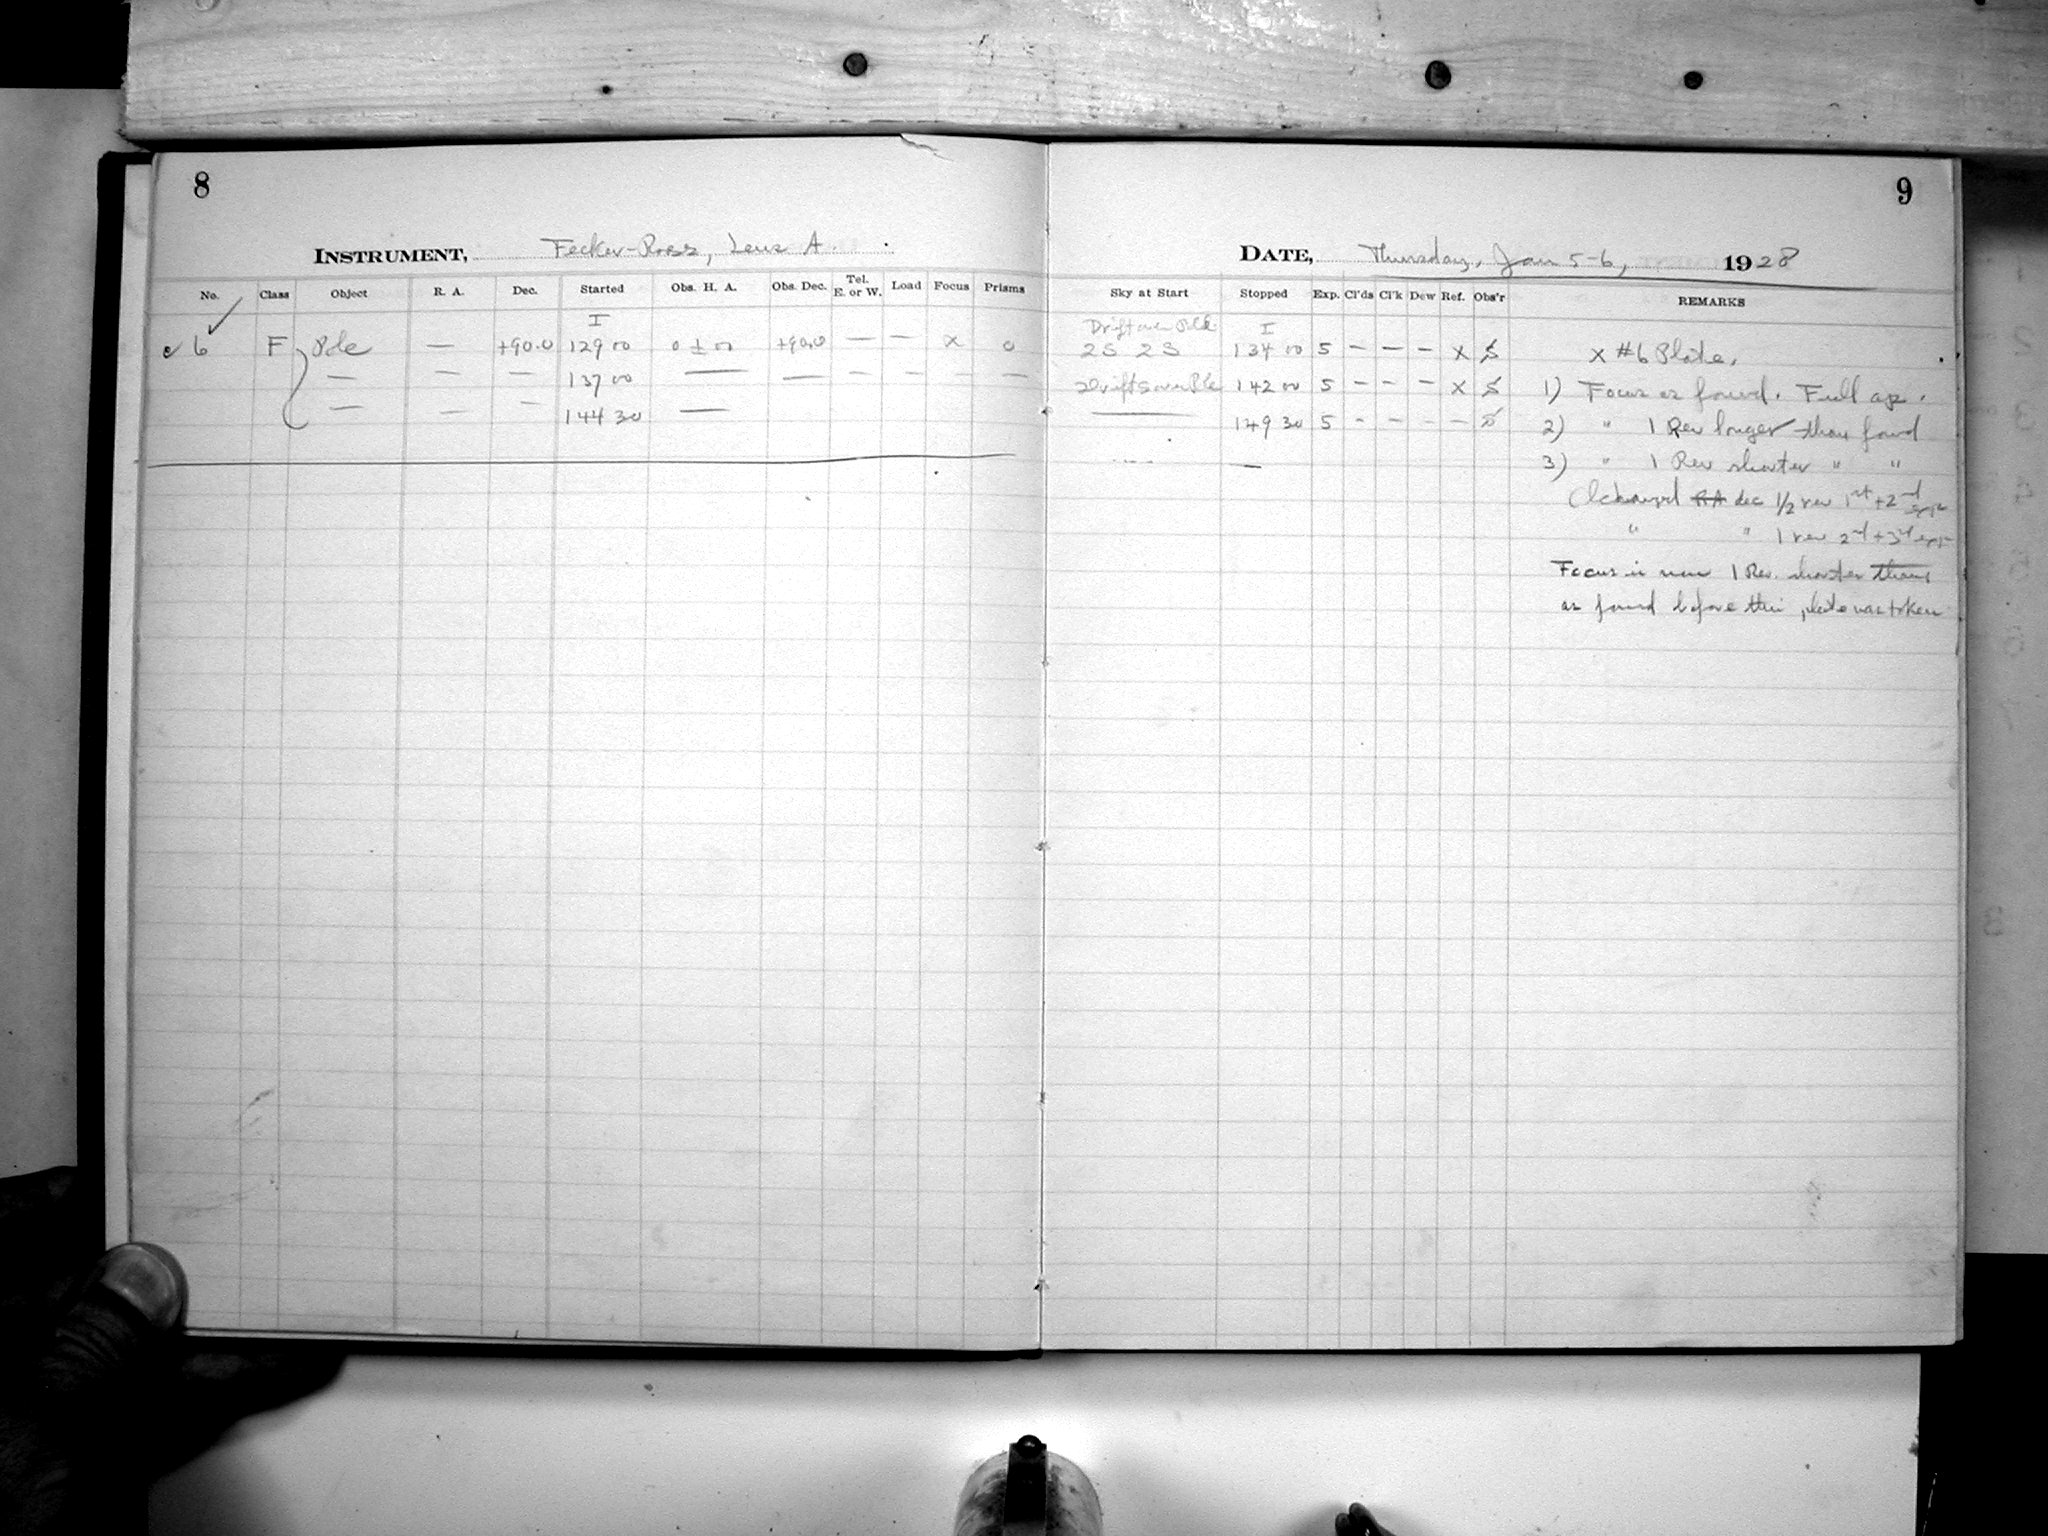 8
INSTRUMENT, Fecker-Ross, Lens A.
No. Class Object R. A. Dec. Started Obs. H. A. Obs. Dec. Tel. E. or W. Load Focus Prisms
I
6 F Pole — +90.0 129 00 0 ± 00 +90.0 — — x 0
— — — 137 00 — — — — — —
— — — 144 30 —
9
DATE, Thursday, Jan 5-6, 1928
Sky at Start Stopped Exp. Cl'ds Cl'k Dew Ref. Obs'r REMARKS
Drift over Pole I
2S 2S 134 00 5 — — — x S x #6 Plate.
Drifts over Pole 142 00 5 – – – x S 1) Focus as found. Full ap.
— 149 30 5 - - - - S 2) " 1 Rev longer than found
— 3) " 1 Rev shorter " "
(I changed RA dec 1/2 rev 1st + 2nd exp
" " 1 rev 2nd + 3rd exp
Focus is now 1 Rev. shorter than
as found before this plate was taken